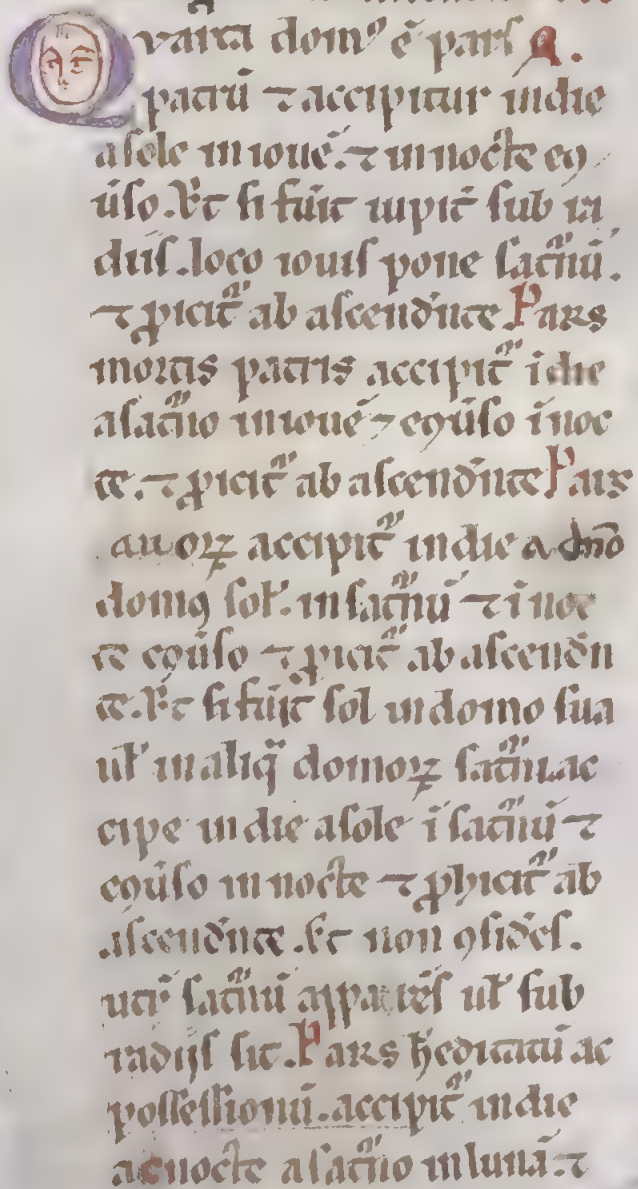 Quarta dom⁹ ē pars A.
patrū ⁊ accipitur in die
a sole in iouē. ⁊ in nocte eꝯ
ūso. Et si fūit iupit̄ sub ra
diis. loco iouis pone satn̄ū.
⁊ ꝓicit᷑ ab ascendn̄te. Pars
mortis patris accipit᷑ ī die
a satn̄o in iouē ⁊ eꝯūso ī noc
te. ⁊ ꝓicit᷑ ab ascendn̄te Pars
auoꝝ accipit᷑ in die a dn̄o
domꝯ sol̄. in satn̄ū ⁊ ī noc
te eꝯūso ⁊ ꝓicit᷑ ab ascendn̄
te. Et si fūit sol in domo sua
ul̄ in aliq̄ domoꝝ satn̄i. ac
cipe in die a sole ī satn̄ū ⁊
eꝯūso in nocte ⁊ ꝓhicit᷑ ab
ascendn̄te. Et non ꝯsides̄.
utr̄ satn̄ū apparēs ul̄ sub
radijs sit. Pars h̄editatū ac
possessionū. accipit᷑ in die
ac nocte a satn̄o in lunā. ⁊